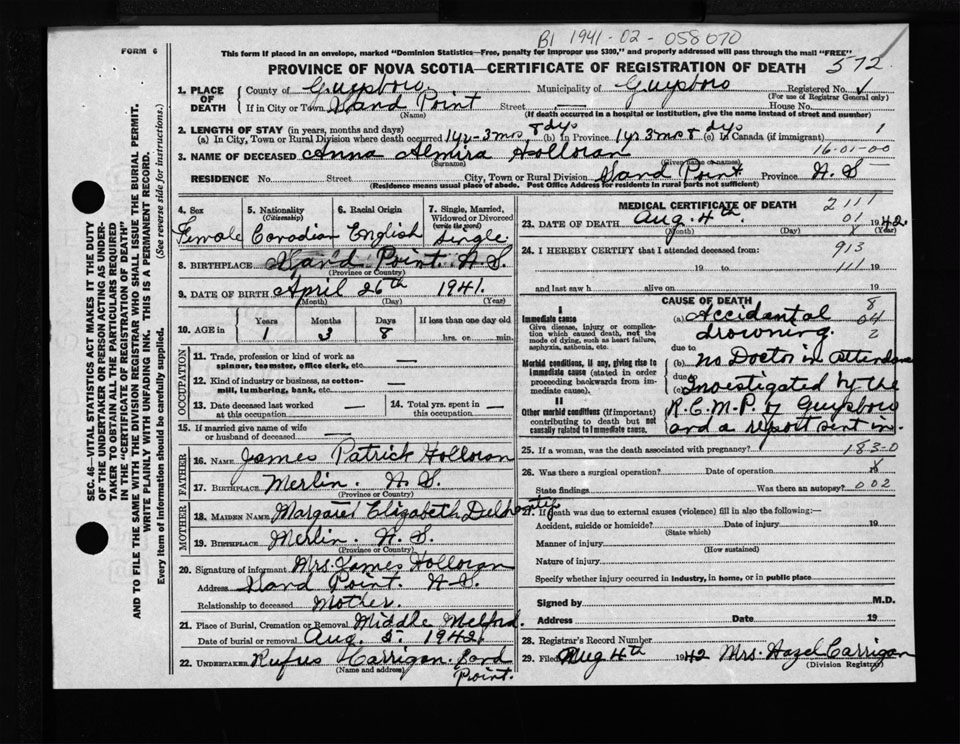 BI 1941-02-058070
FORM 6
This form if placed in an envelope, marked "Dominion Statistics—Free, penalty for improper use $300," and properly addressed will pass through the mail "FREE"
PROVINCE OF NOVA SCOTIA—CERTIFICATE OF REGISTRATION OF DEATH 572
1. PLACE OF DEATH County of Guysboro Municipality of Guysboro Registered No.
(For use of Registrar General only)
If in City or Town Sand Point Street — House No.
(Name) (If death occurred in a hospital or institution, give the name instead of street and number)
2. LENGTH OF STAY (in years, months and days)
(a) In City, Town or Rural Division where death occurred 1 yr-3mos 8 dys (b) In Province 1 yr 3 mos 8 dys (c) In Canada (if immigrant) 1
16-01-00
3. NAME OF DECEASED Anna Almira Holloran
(Surname) (Given name or names)
RESIDENCE No. Street City, Town or Rural Division Sand Point Province N.S
(Residence means usual place of abode. Post Office Address for residents in rural parts not sufficient)
4. Sex
Female
5. Nationality
(Citizenship)
Canadian
6. Racial Origin
English
7. Single, Married, Widowed or Divorced
(write the word)
Single
8. BIRTHPLACE Sand Point. N.S.
(Province or Country)
9. DATE OF BIRTH April 26th 1941.
(Month) (Day) (Year)
10. AGE in Years Months Days If less than one day old
1 3 8 hrs. or min.
OCCUPATION
11. Trade, profession or kind of work as
spinner, teamster, office clerk, etc. —
12. Kind of industry or business, as cotton-
mill, lumbering, bank, etc. —
13. Date deceased last worked
at this occupation —
14. Total yrs. spent in
this occupation —
15. If married give name of wife
or husband of deceased —
FATHER
16. NAME James Patrick Holloran
17. BIRTHPLACE Merlin. N.S.
(Province or Country)
MOTHER
18. MAIDEN NAME Margaret Elizabeth
19. BIRTHPLACE Merlin. N.S.
(Province or Country)
20. Signature of informant Mrs. James Holloran
Address Sand Point. N.S.
Relationship to deceased Mother.
21. Place of Burial, Cremation or Removal Middle Melford.
Date of burial or removal Aug. 5. 1942.
22. UNDERTAKER Rufus Carrigan. Sand Point.
(Name and address)
MEDICAL CERTIFICATE OF DEATH 2111
23. DATE OF DEATH Aug. 4th 01 1942.
(Month) (Day) (Year)
24. I HEREBY CERTIFY that I attended deceased from:
913
19 to 111 19
and last saw h alive on 19
CAUSE OF DEATH
Immediate cause
Give disease, injury or complication which caused death, not the mode of dying, such as heart failure, asphyxia, asthenia, etc.
(a) Accidantal drowning.
8
04
2
due to
Morbid conditions, if any, giving rise to immediate cause (stated in order proceeding backwards from immediate cause).
(b) No Doctor in attendance
due to
(c) Investigated by the
R.C.M.P. of Guysboro
and a report sent in.
Other morbid conditions (if important) contributing to death but not causally related to immediate cause.
25. If a woman, was the death associated with pregnancy? 183-0
26. Was there a surgical operation? Date of operation 19
State findings Was there an autopsy? 002
27. If death was due to external causes (violence) fill in also the following:—
Accident, suicide or homicide? Date of injury 19
(State which)
Manner of injury
(How sustained)
Nature of injury
Specify whether injury occurred in industry, in home, or in public place
Signed by M.D.
Address Date 19
28. Registrar's Record Number
29. Filed Aug 4th 1942 Mrs. Hazel Carrigan
(Division Registrar)
SEC. 46—VITAL STATISTICS ACT MAKES IT THE DUTY
OF THE UNDERTAKER OR PERSON ACTING AS UNDER-
TAKER TO OBTAIN ALL THE PARTICULARS REQUIRED
IN THE "CERTIFICATE OF REGISTRATION OF DEATH"
AND TO FILE THE SAME WITH THE DIVISION REGISTRAR WHO SHALL ISSUE THE BURIAL PERMIT.
WRITE PLAINLY WITH UNFADING INK. THIS IS A PERMANENT RECORD.
Every item of information should be carefully supplied. (See reverse side for instructions.)